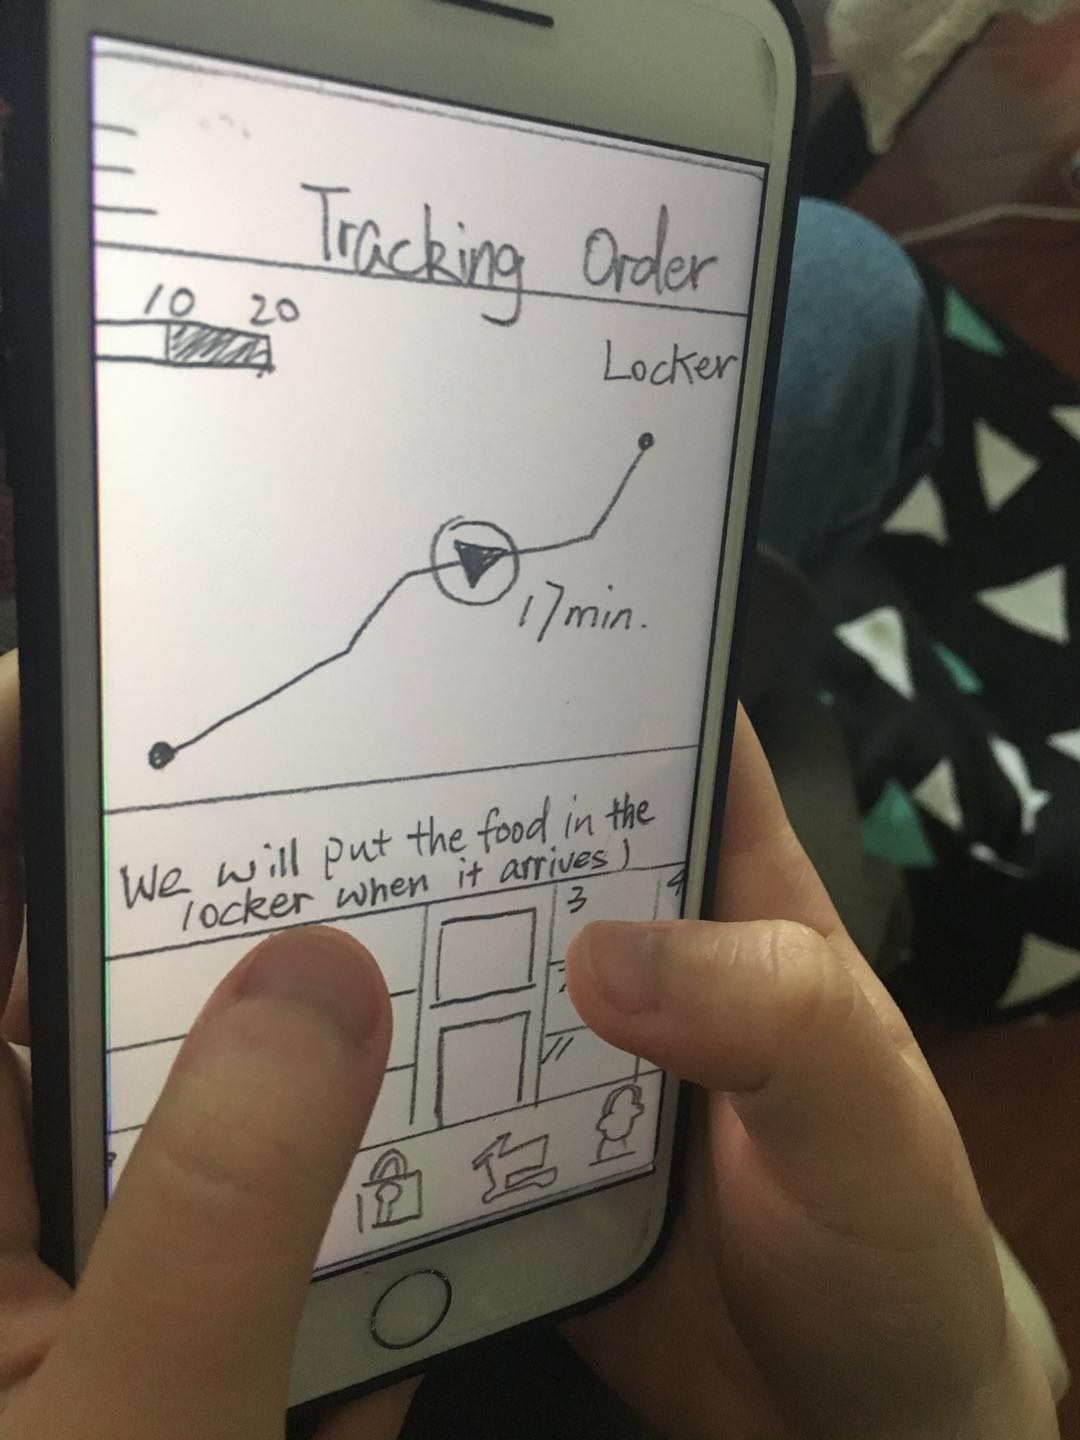 Tracking Order
10 20
Locker
17min.
We will put the food in the
locker when it arrives)
3
4